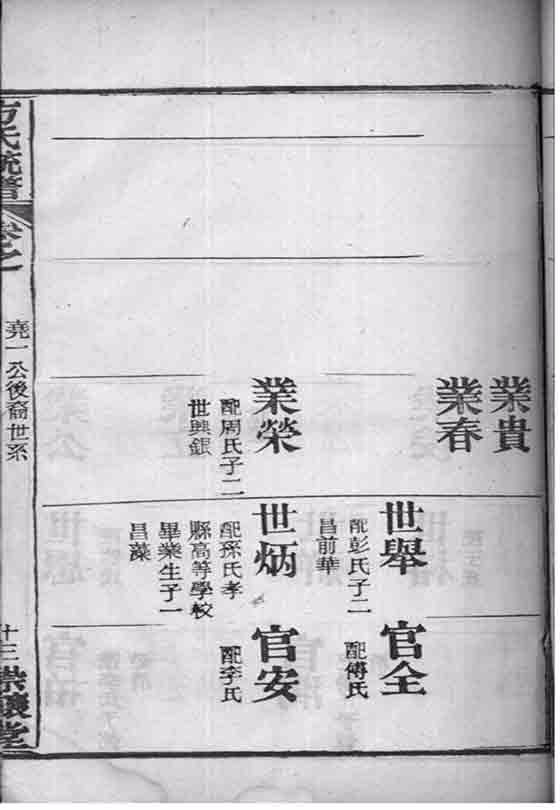 業貴
業春
世舉
配彭氏子二
昌前華
官全
配傅氏
業榮
配周氏子二
世興銀
世炳
配孫氏孝
縣高等學校
畢業生子一
昌藻
官安
配李氏
方氏統譜
堯一公後裔世系
十三
崇讓堂